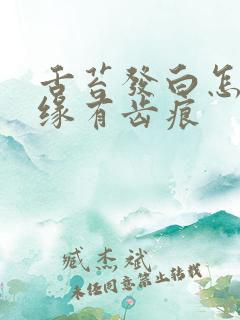 舌苔發白怎
缘有齿痕
臧杰斌
未经同意禁止转载